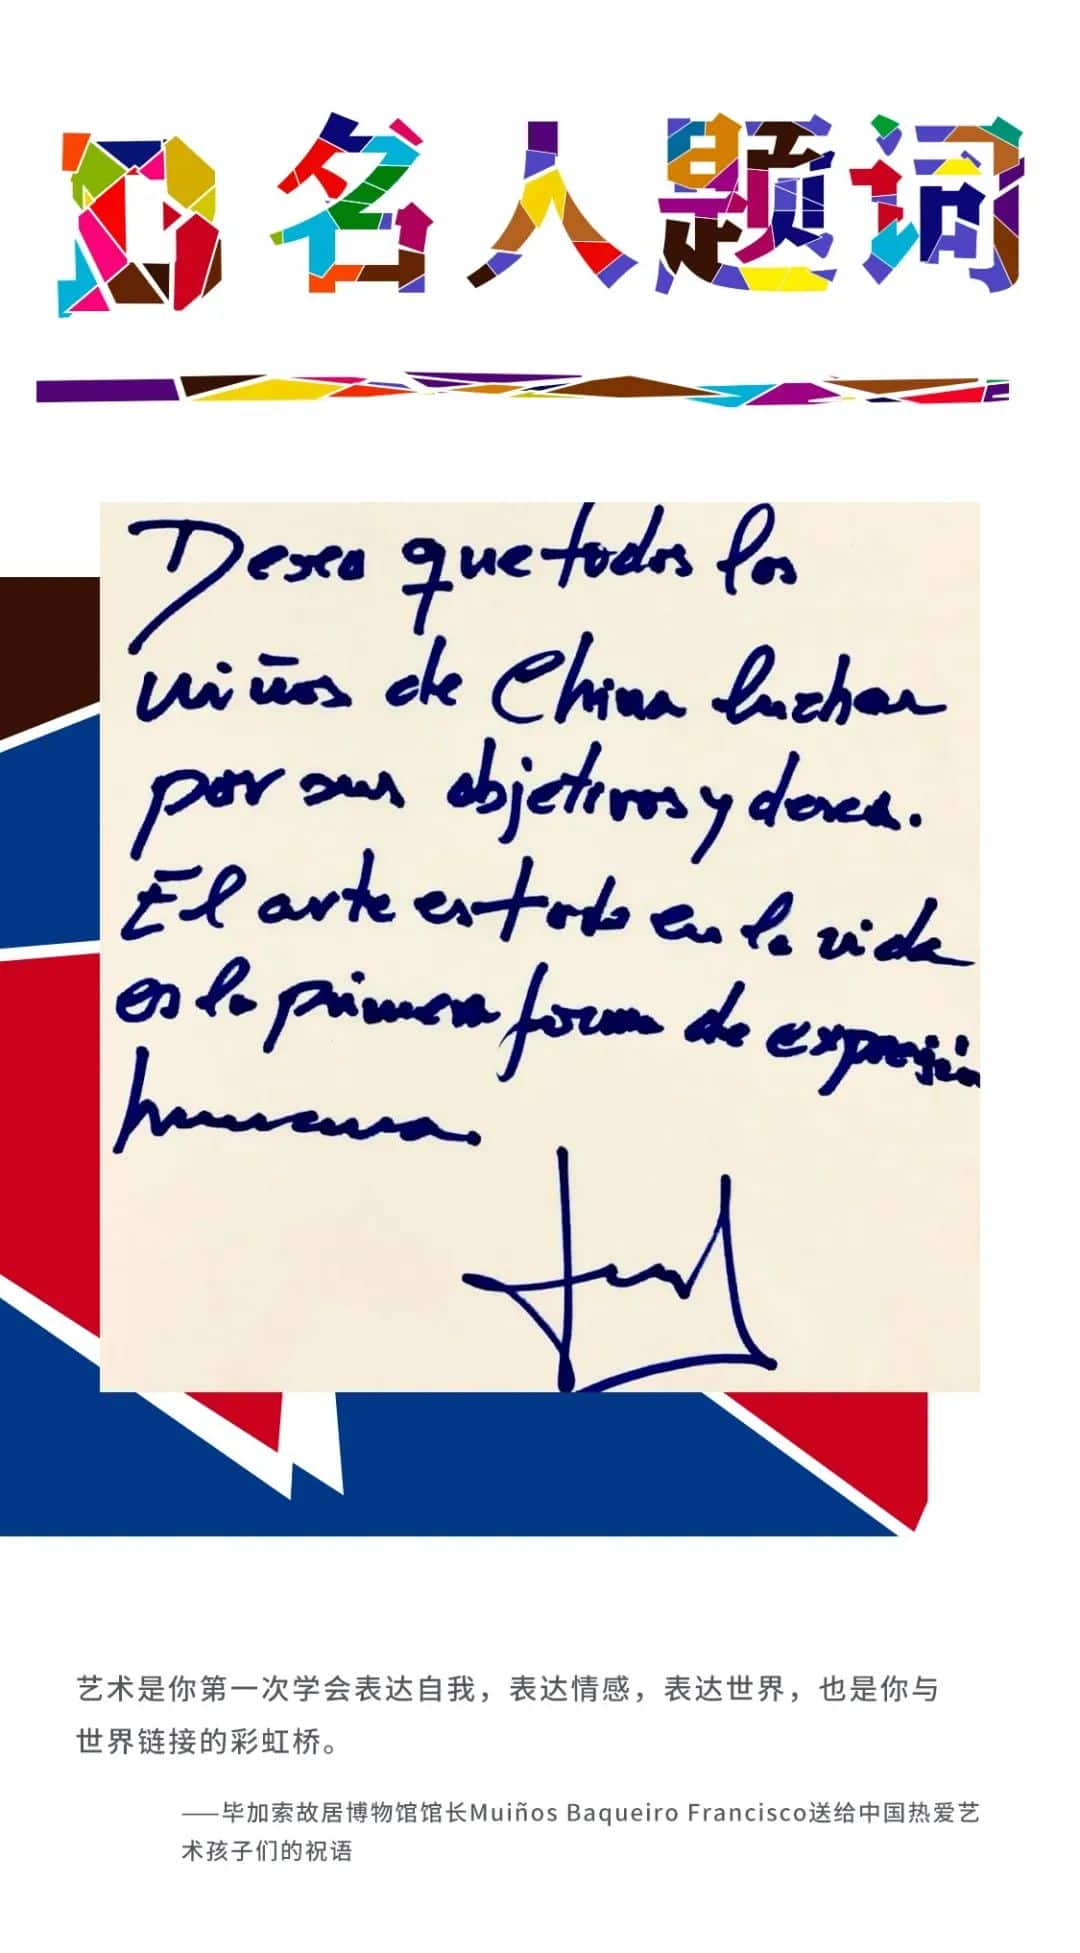 D 名人题词
Deseo que todos los
niños de China luchen
por sus objetivos y deseos.
El arte es todo en la vida
es la primera forma de expresión
humana.
艺术是你第一次学会表达自我，表达情感，表达世界，也是你与
世界链接的彩虹桥。
——毕加索故居博物馆馆长Muiños Baqueiro Francisco送给中国热爱艺
术孩子们的祝语